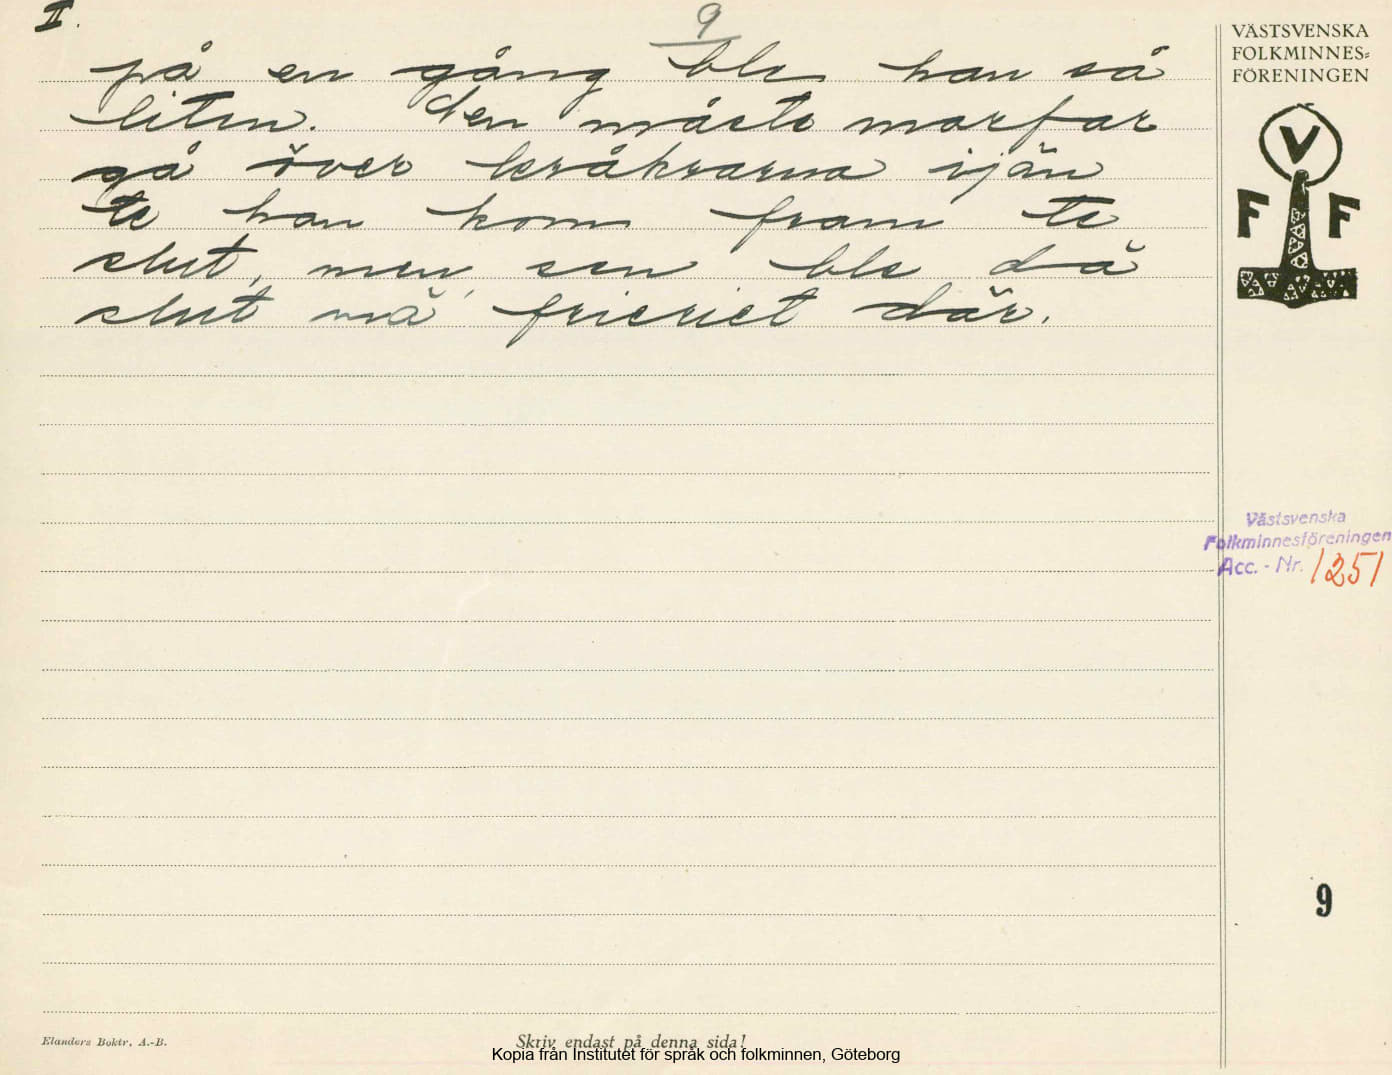 II.
9
på en gång ble han så
liten. Den måste morfar
gå över kråkrarna ijän
te han kom fram te
slut, men sen ble dä
slut mä frieriet där.
VÄSTSVENSKA
FOLKMINNES-
FÖRENINGEN
V
F F
Västsvenska
Folkminnesföreningen
Acc. - Nr. 1251
9
Elanders Boktr. A.-B.
Skriv endast på denna sida!
Kopia från Institutet för språk och folkminnen, Göteborg